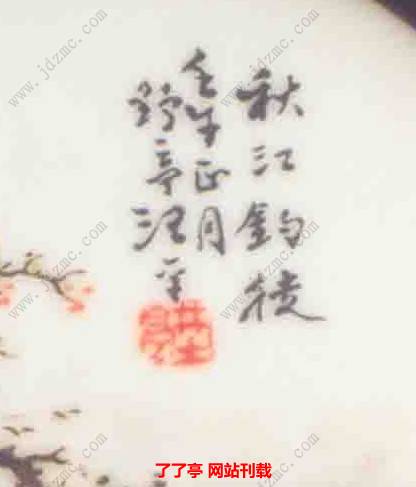 秋江釣徒
壬午正月
野亭汪平
了了亭 网站刊载
www.jdzmc.com